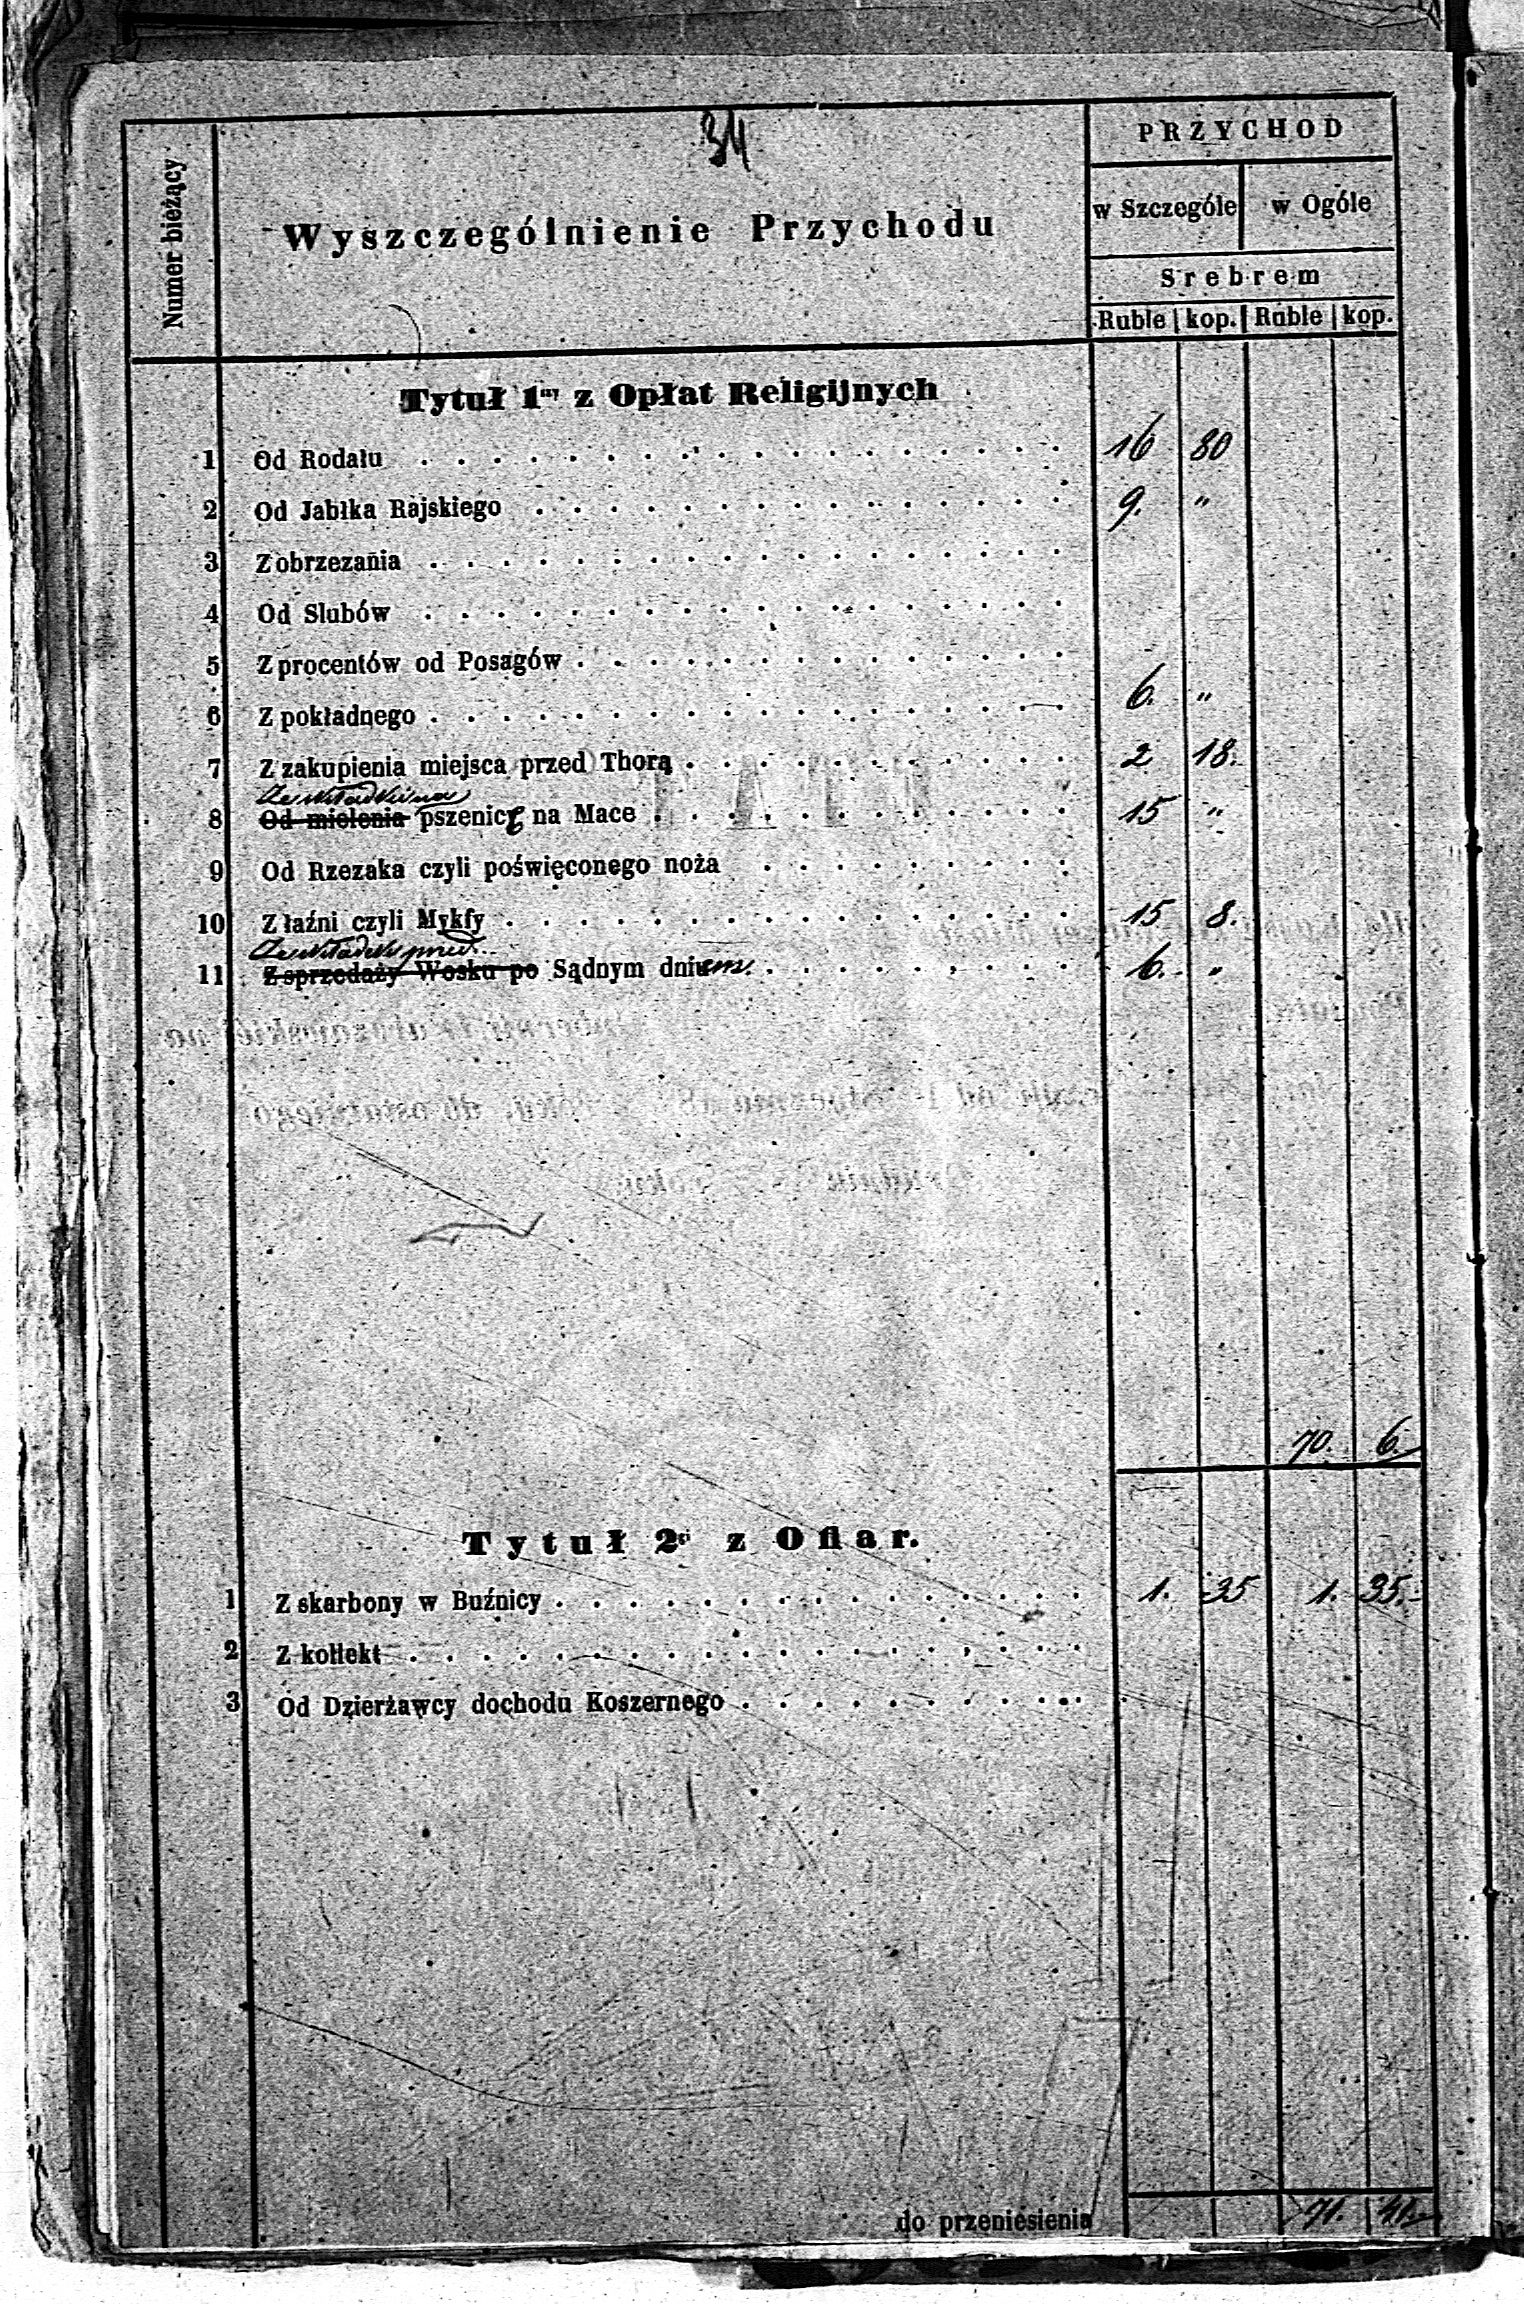 34
PRZYCHOD
Numer bieżący
Wyszczególnienie Przychodu
w Szczególe w Ogóle
Srebrem
Ruble kop. Ruble kop.
Tytuł 1ny z Opłat Religijnych
1 Od Rodału 16 80
2 Od Jabłka Rajskiego 9. "
3 Z obrzezania
4 Od Slubów
5 Z procentów od Posagów
6 Z pokładnego 6. "
7 Z zakupienia miejsca przed Thorą 2 18.
Ze składki na
8 Od mielenia pszenicę na Mace 15 "
9 Od Rzezaka czyli poświęconego noża
10 Z łaźni czyli Mykfy 15 8.
Ze składek przed
11 Z sprzedaży Wosku po Sądnym dniem. 6. "
70. 6.
Tytuł 2gi z Ofiar.
1 Z skarbony w Buźnicy 1. 35 1. 35.
2 Z kollekt
3 Od Dzierżawcy dochodu Koszernego
do przeniesienia 71. 41.